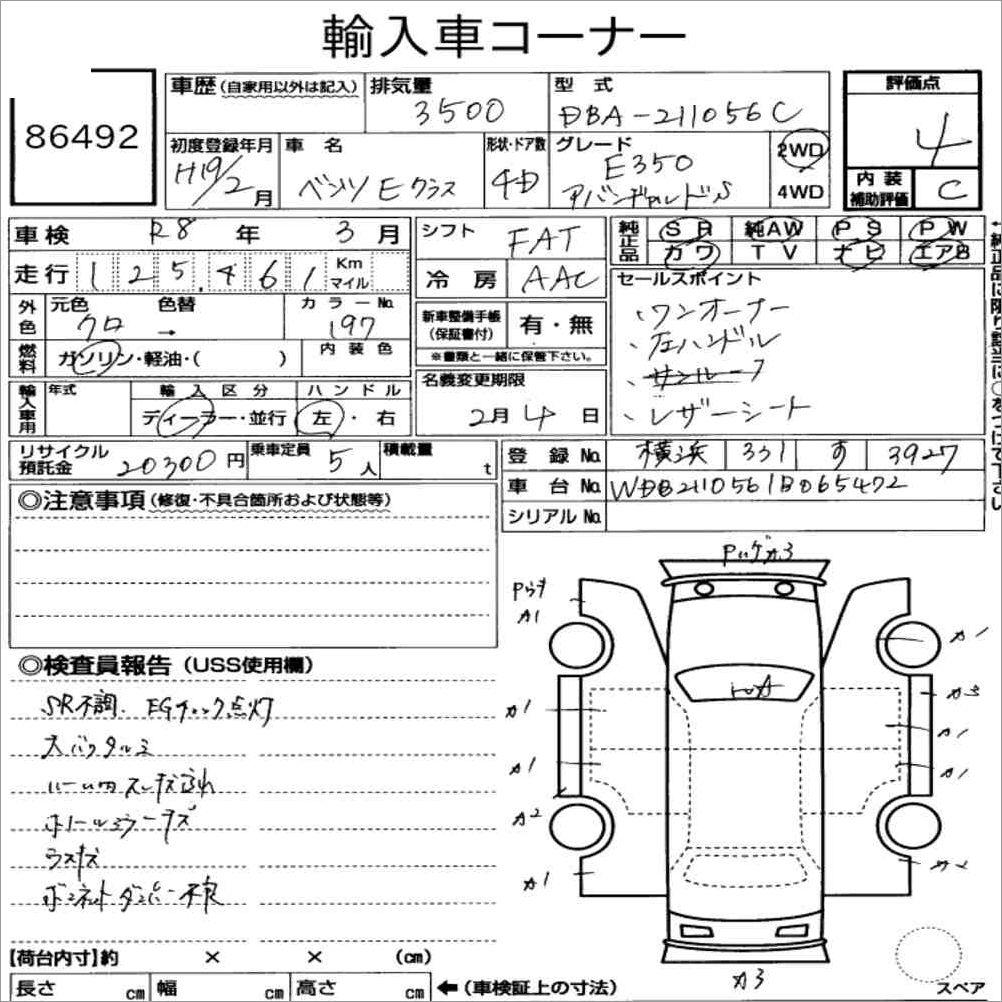 輸入車コーナー
86492
車歴 (自家用以外は記入)
排気量
3500
型 式
DBA-211056C
評価点
4
内装補助評価
C
初度登録年月
H19/2月
車 名
ベンツ Eクラス
形状・ドア数
4D
グレード
E350
アバンギャルドS
2WD
4WD
車検 R8 年 3 月
走行 125,461 Km マイル
外色
元色
クロ
色替
→
カラーNo.
197
燃料
ガソリン・軽油・( )
内装色
輸入車用
年式
輸入区分
ディーラー・並行
ハンドル
左・右
シフト
FAT
冷房
AAC
新車整備手帳(保証書付)
有・無
※書類と一緒に保管下さい。
名義変更期限
2月4日
純正品
SR
純AW
PS
PW
カワ
TV
ナビ
エアB
セールスポイント
・ワンオーナー
・左ハンドル
・サンルーフ
・レザーシート
リサイクル預託金
20300円
乗車定員
5人
積載量
t
登録No.
横浜 331 す 3927
車台No.
WDB2110561B065472
シリアルNo.
◎注意事項 (修復・不具合箇所および状態等)
◎検査員報告 (USS使用欄)
SR不調. EGチェック点灯
スバックルミ
ルーム内スレキズ汚れ
ホイールミラーキズ
ラスキズ
ボンネットダンパー不良
【荷台内寸】約 × × (cm)
長さ cm
幅 cm
高さ cm
←(車検証上の寸法)
A1
A1
A1
A2
A1
A1
A3
A1
A1
A2
A3
スペア